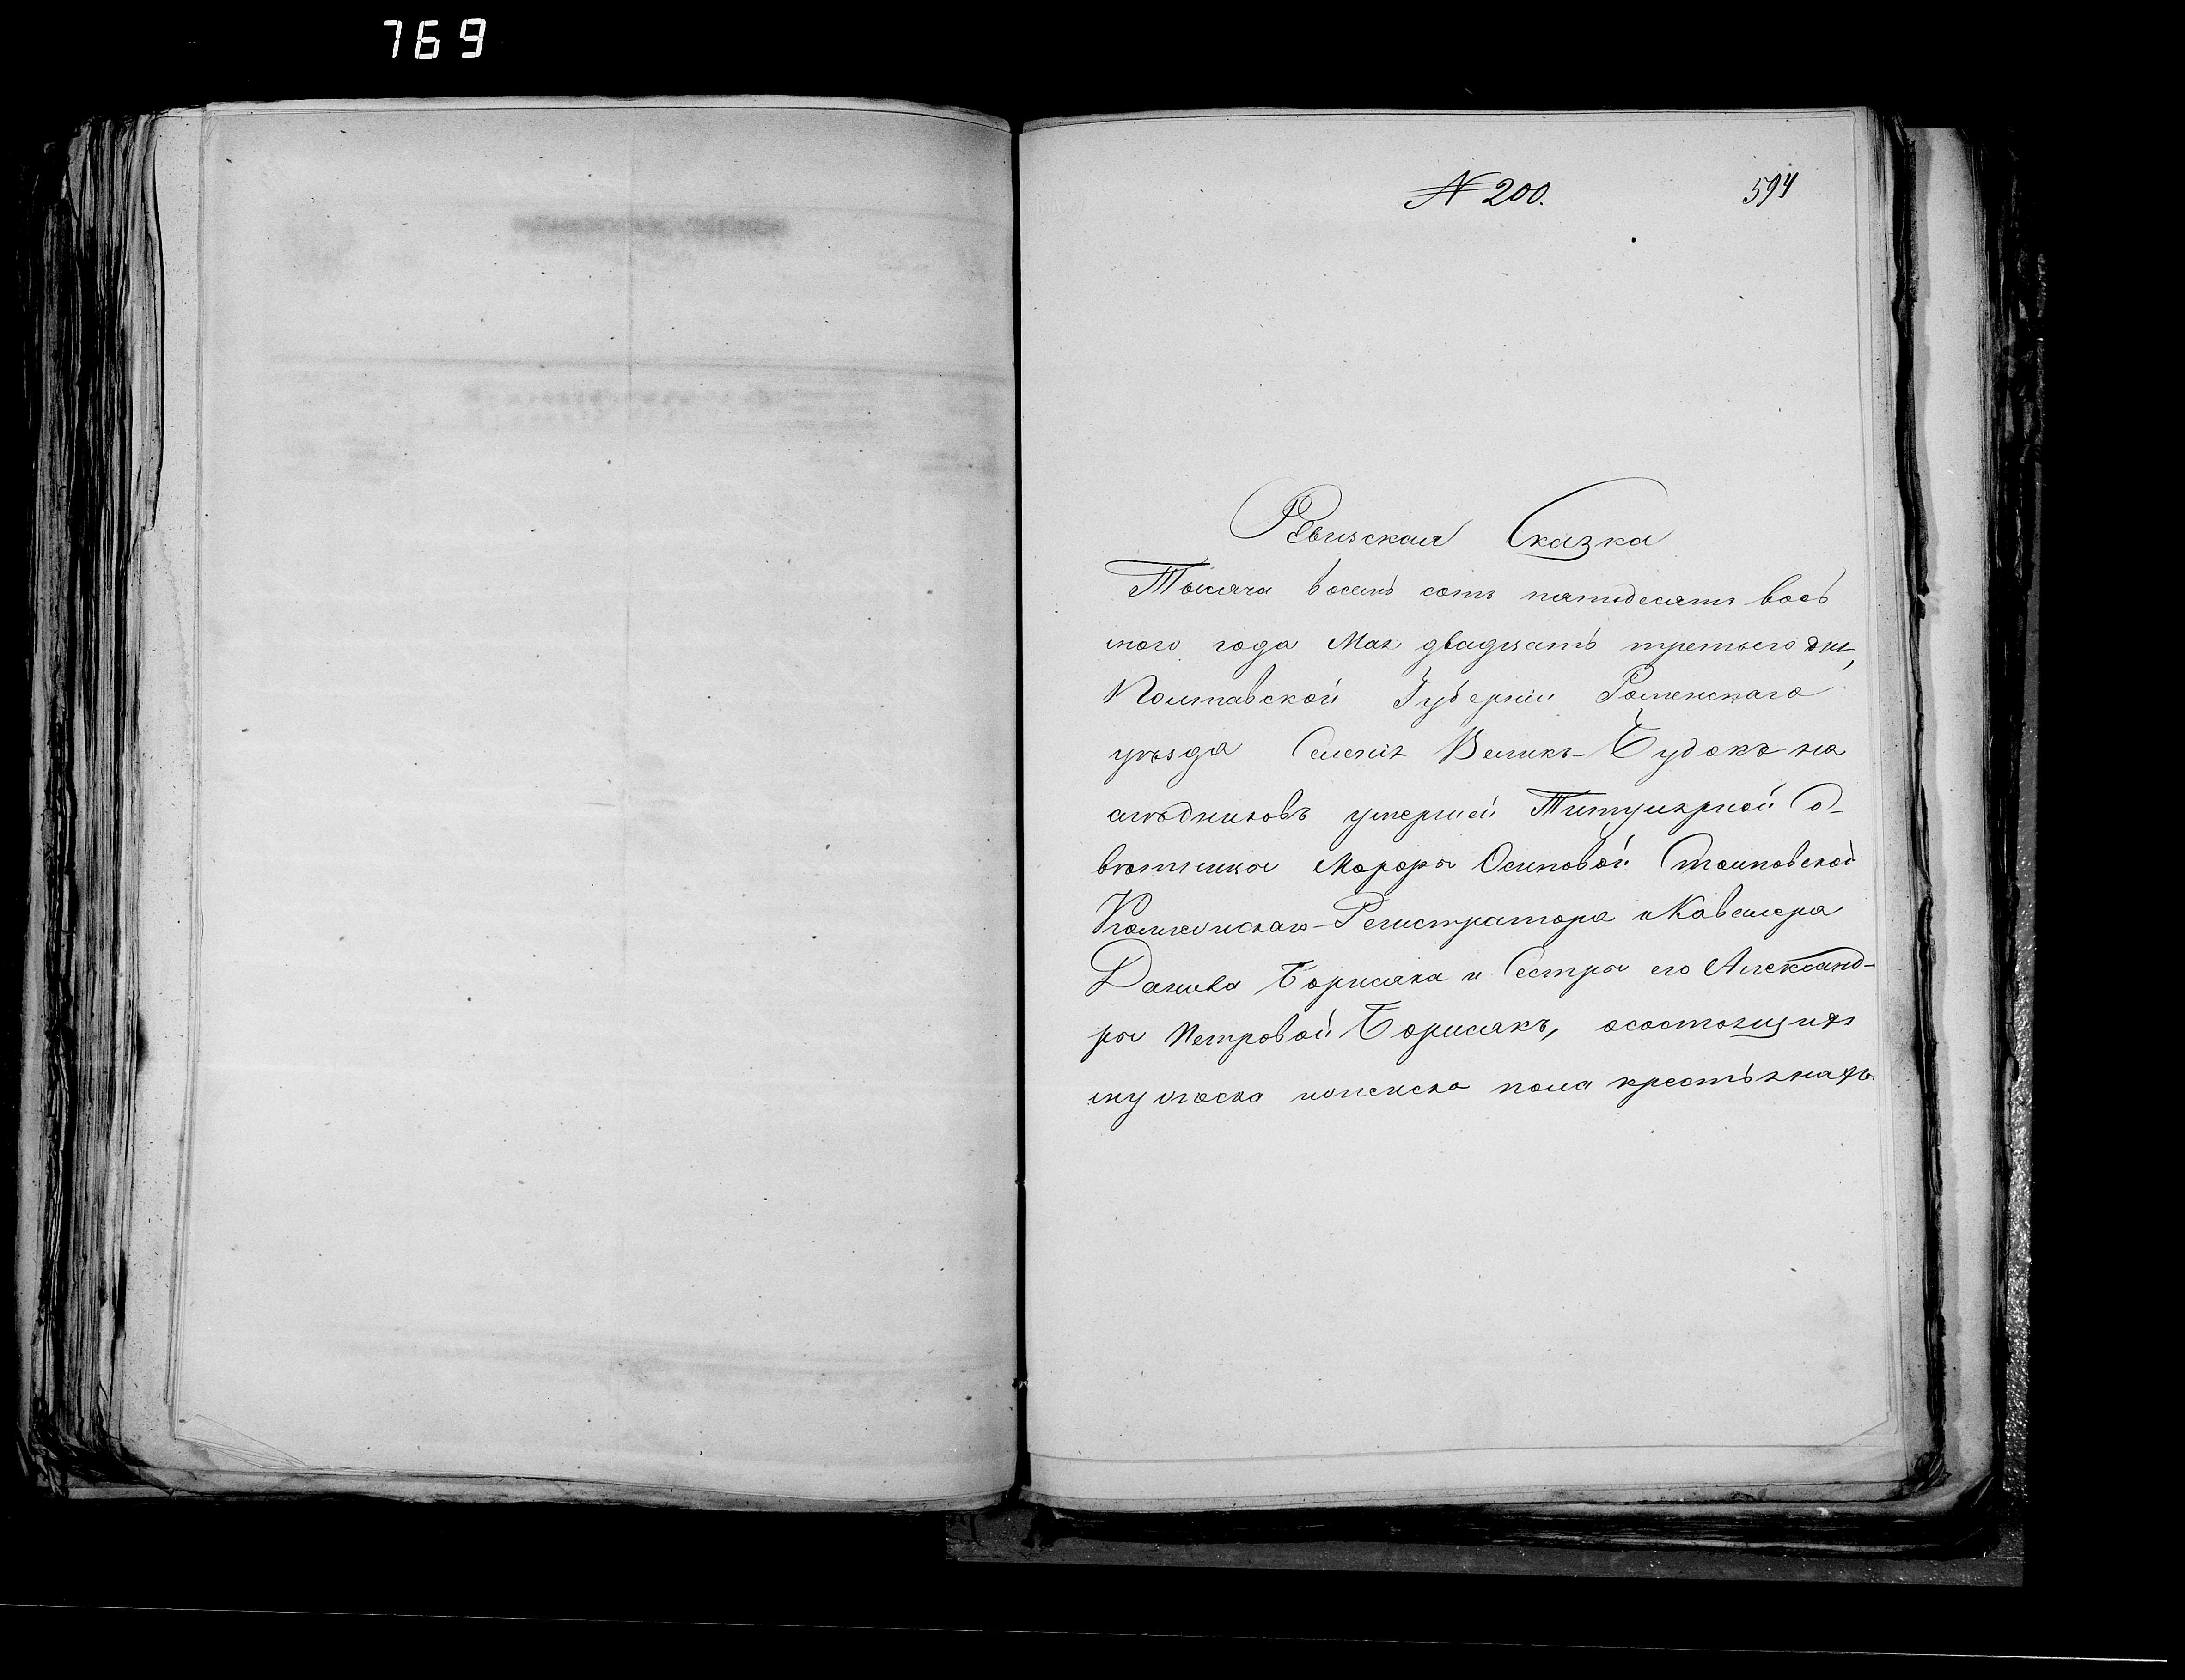 769
№ 200.
594
Ревизская Сказка
Тысяча восемь сотъ пятидесятъ вось
мого года Мая двадцать третьего дня,
Полтавской Губерніи Роменскаго
уѣзда Селенія Великъ-Будокъ на
слѣдниковъ умершей Титулярной Со-
вѣтницы Марфы Осиповой
Коллежскаго-Регистратора и Кавалера
Данила Борисяка и Сестры его Александ-
ры Петровой Борисякъ, осостоящихъ
мужеска иженска пола крестьянахъ.